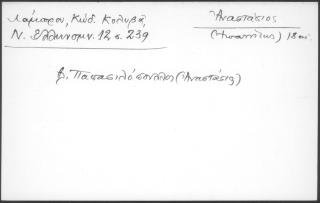 Λάμπρου, Κώδ. Κολυβᾶ,
Ν. Ἑλληνομν. 12 σ. 239
Ἀναστάσιος
18 αἰ.
β. Παπασιλόπουλος (Ἀναστάσιος)